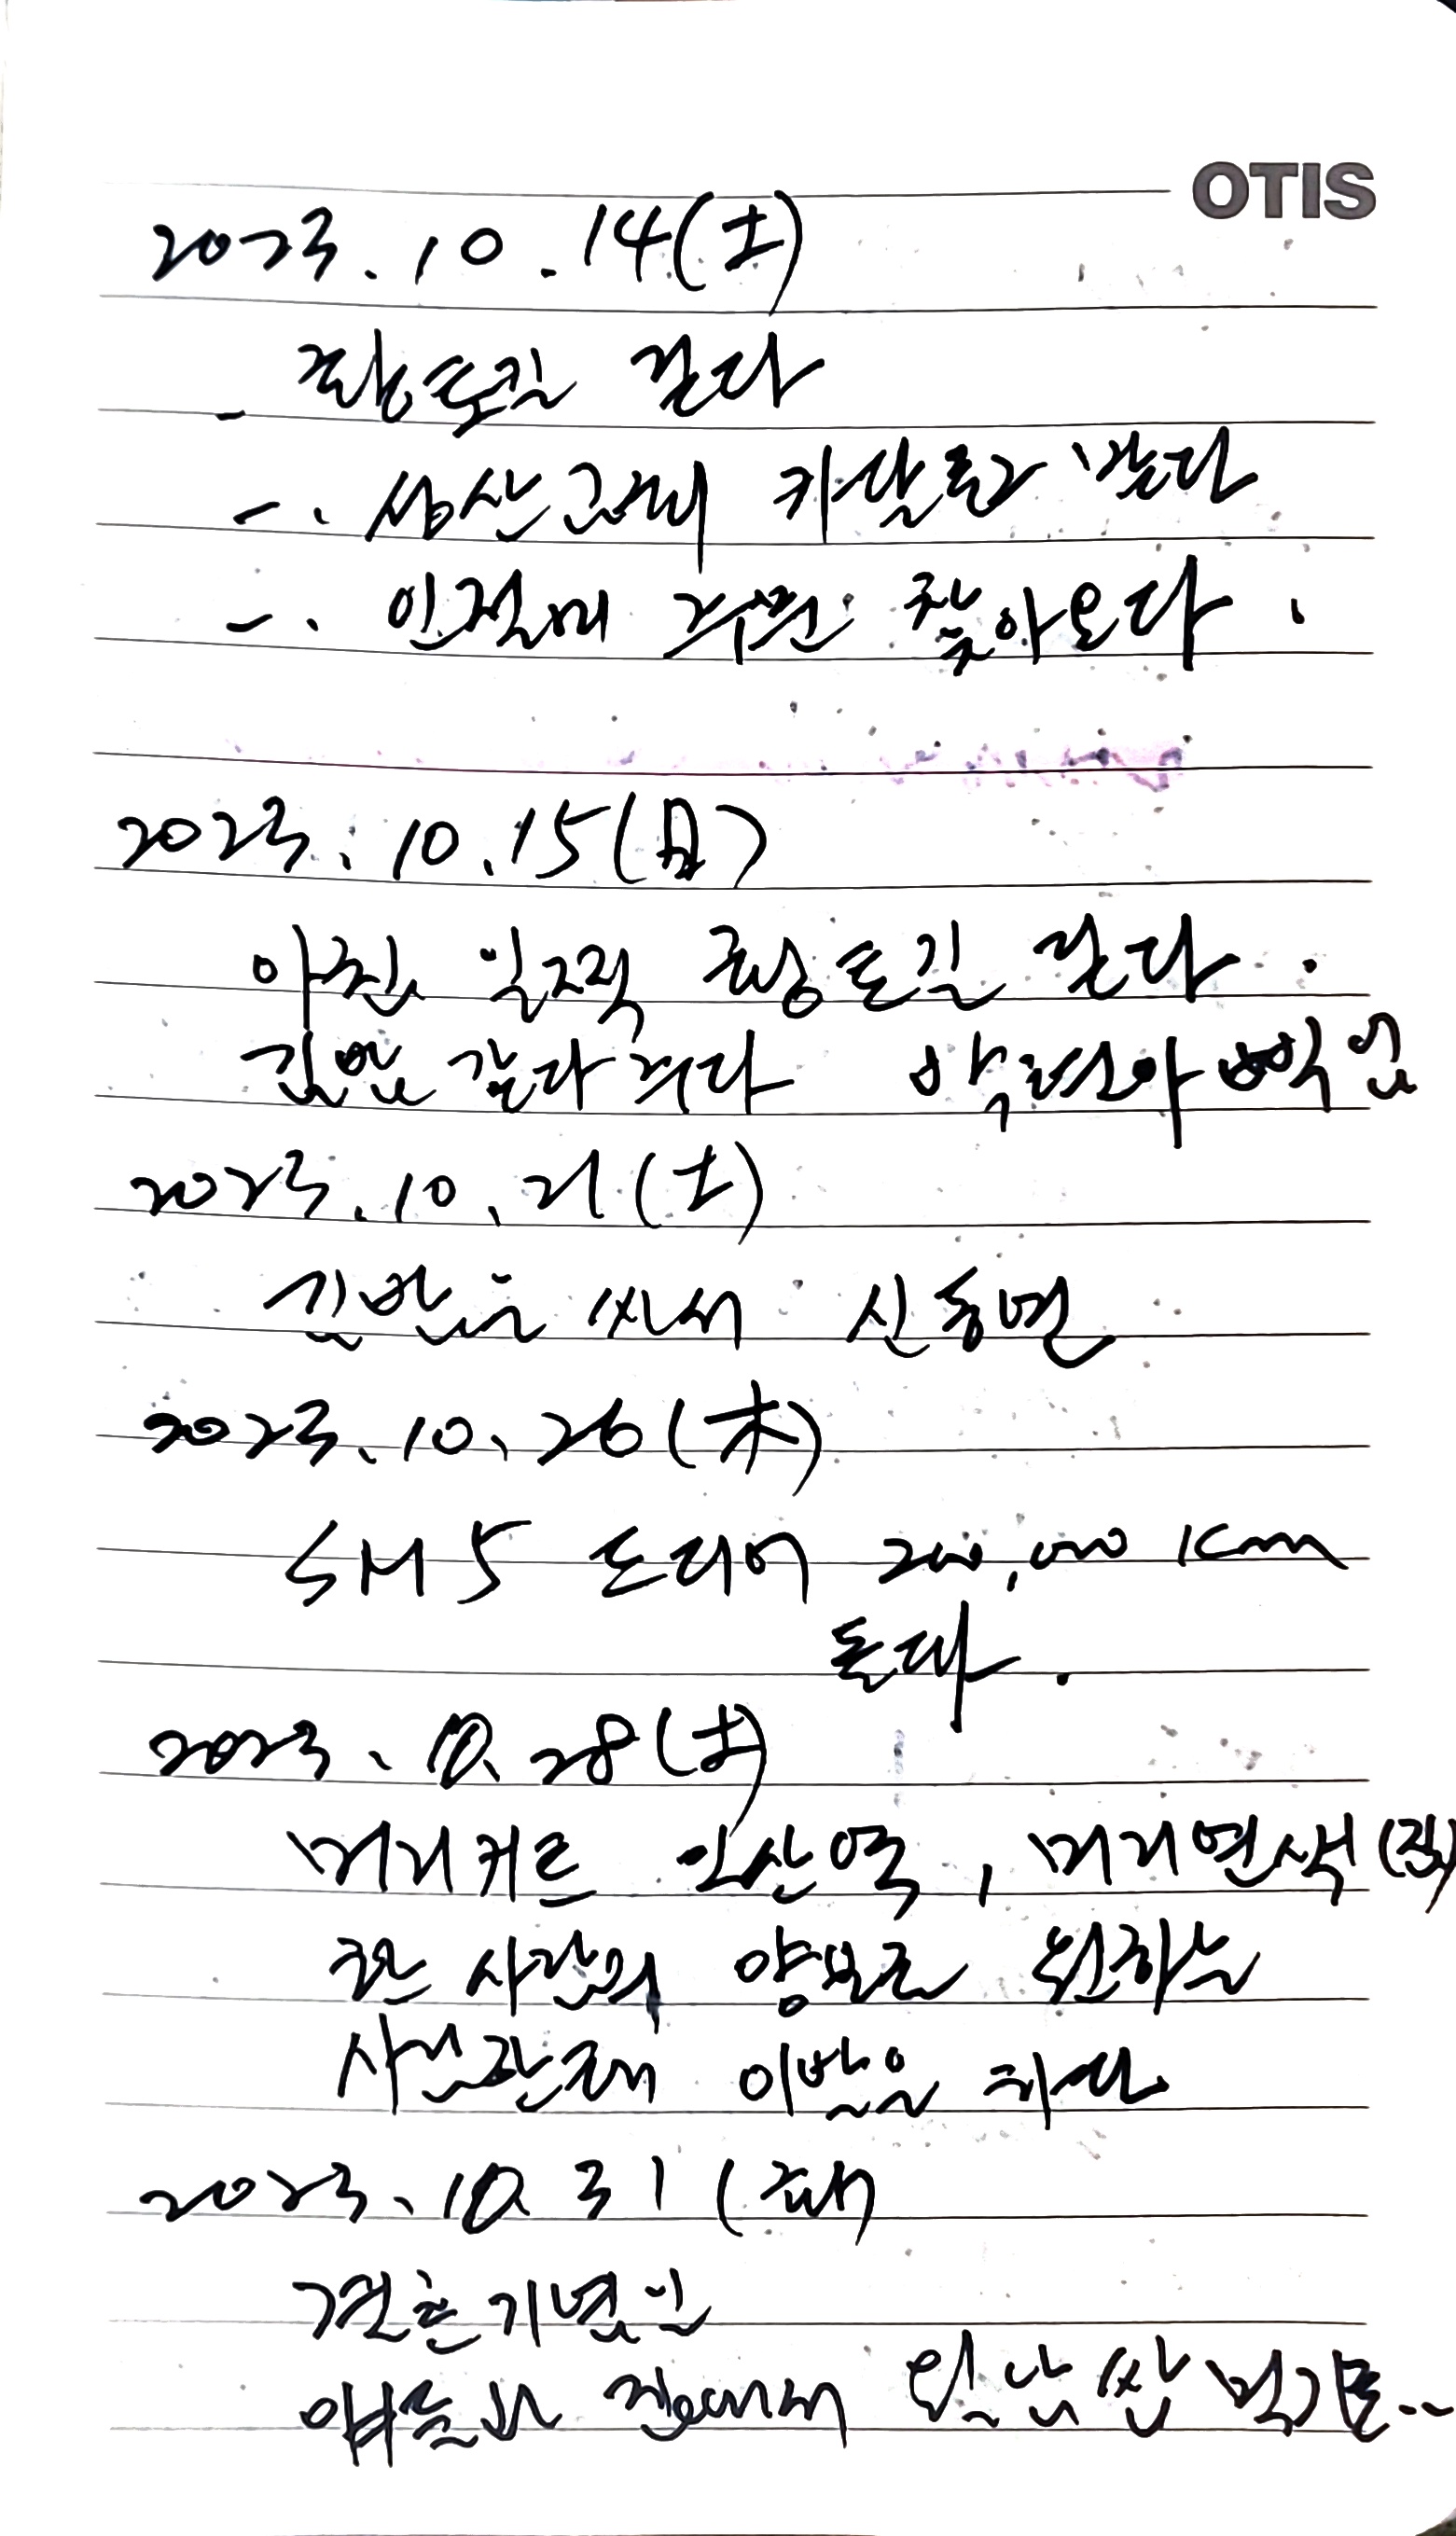 OTIS
2023.10.14(土)
- 황토길 걷다
-. 생산 카달로그 받다
-. 인절미 찾아오다.
2023.10.15(日)
아침 일찍 황토길 걷다.
김밥 갖다주다
2023.10.21(土)
김밥을 싸서 신동면
2023.10.26(木)
SM5 드디어 200,000 Km
돌다.
2023.10.28(土)
머리커트 일산역, 머리염색(집)
한 사람의 양보로 원하는
시간대에 이발을 하다
2023.10.31(火)
결혼기념일
애들과 집에서 월남쌈 먹기로..